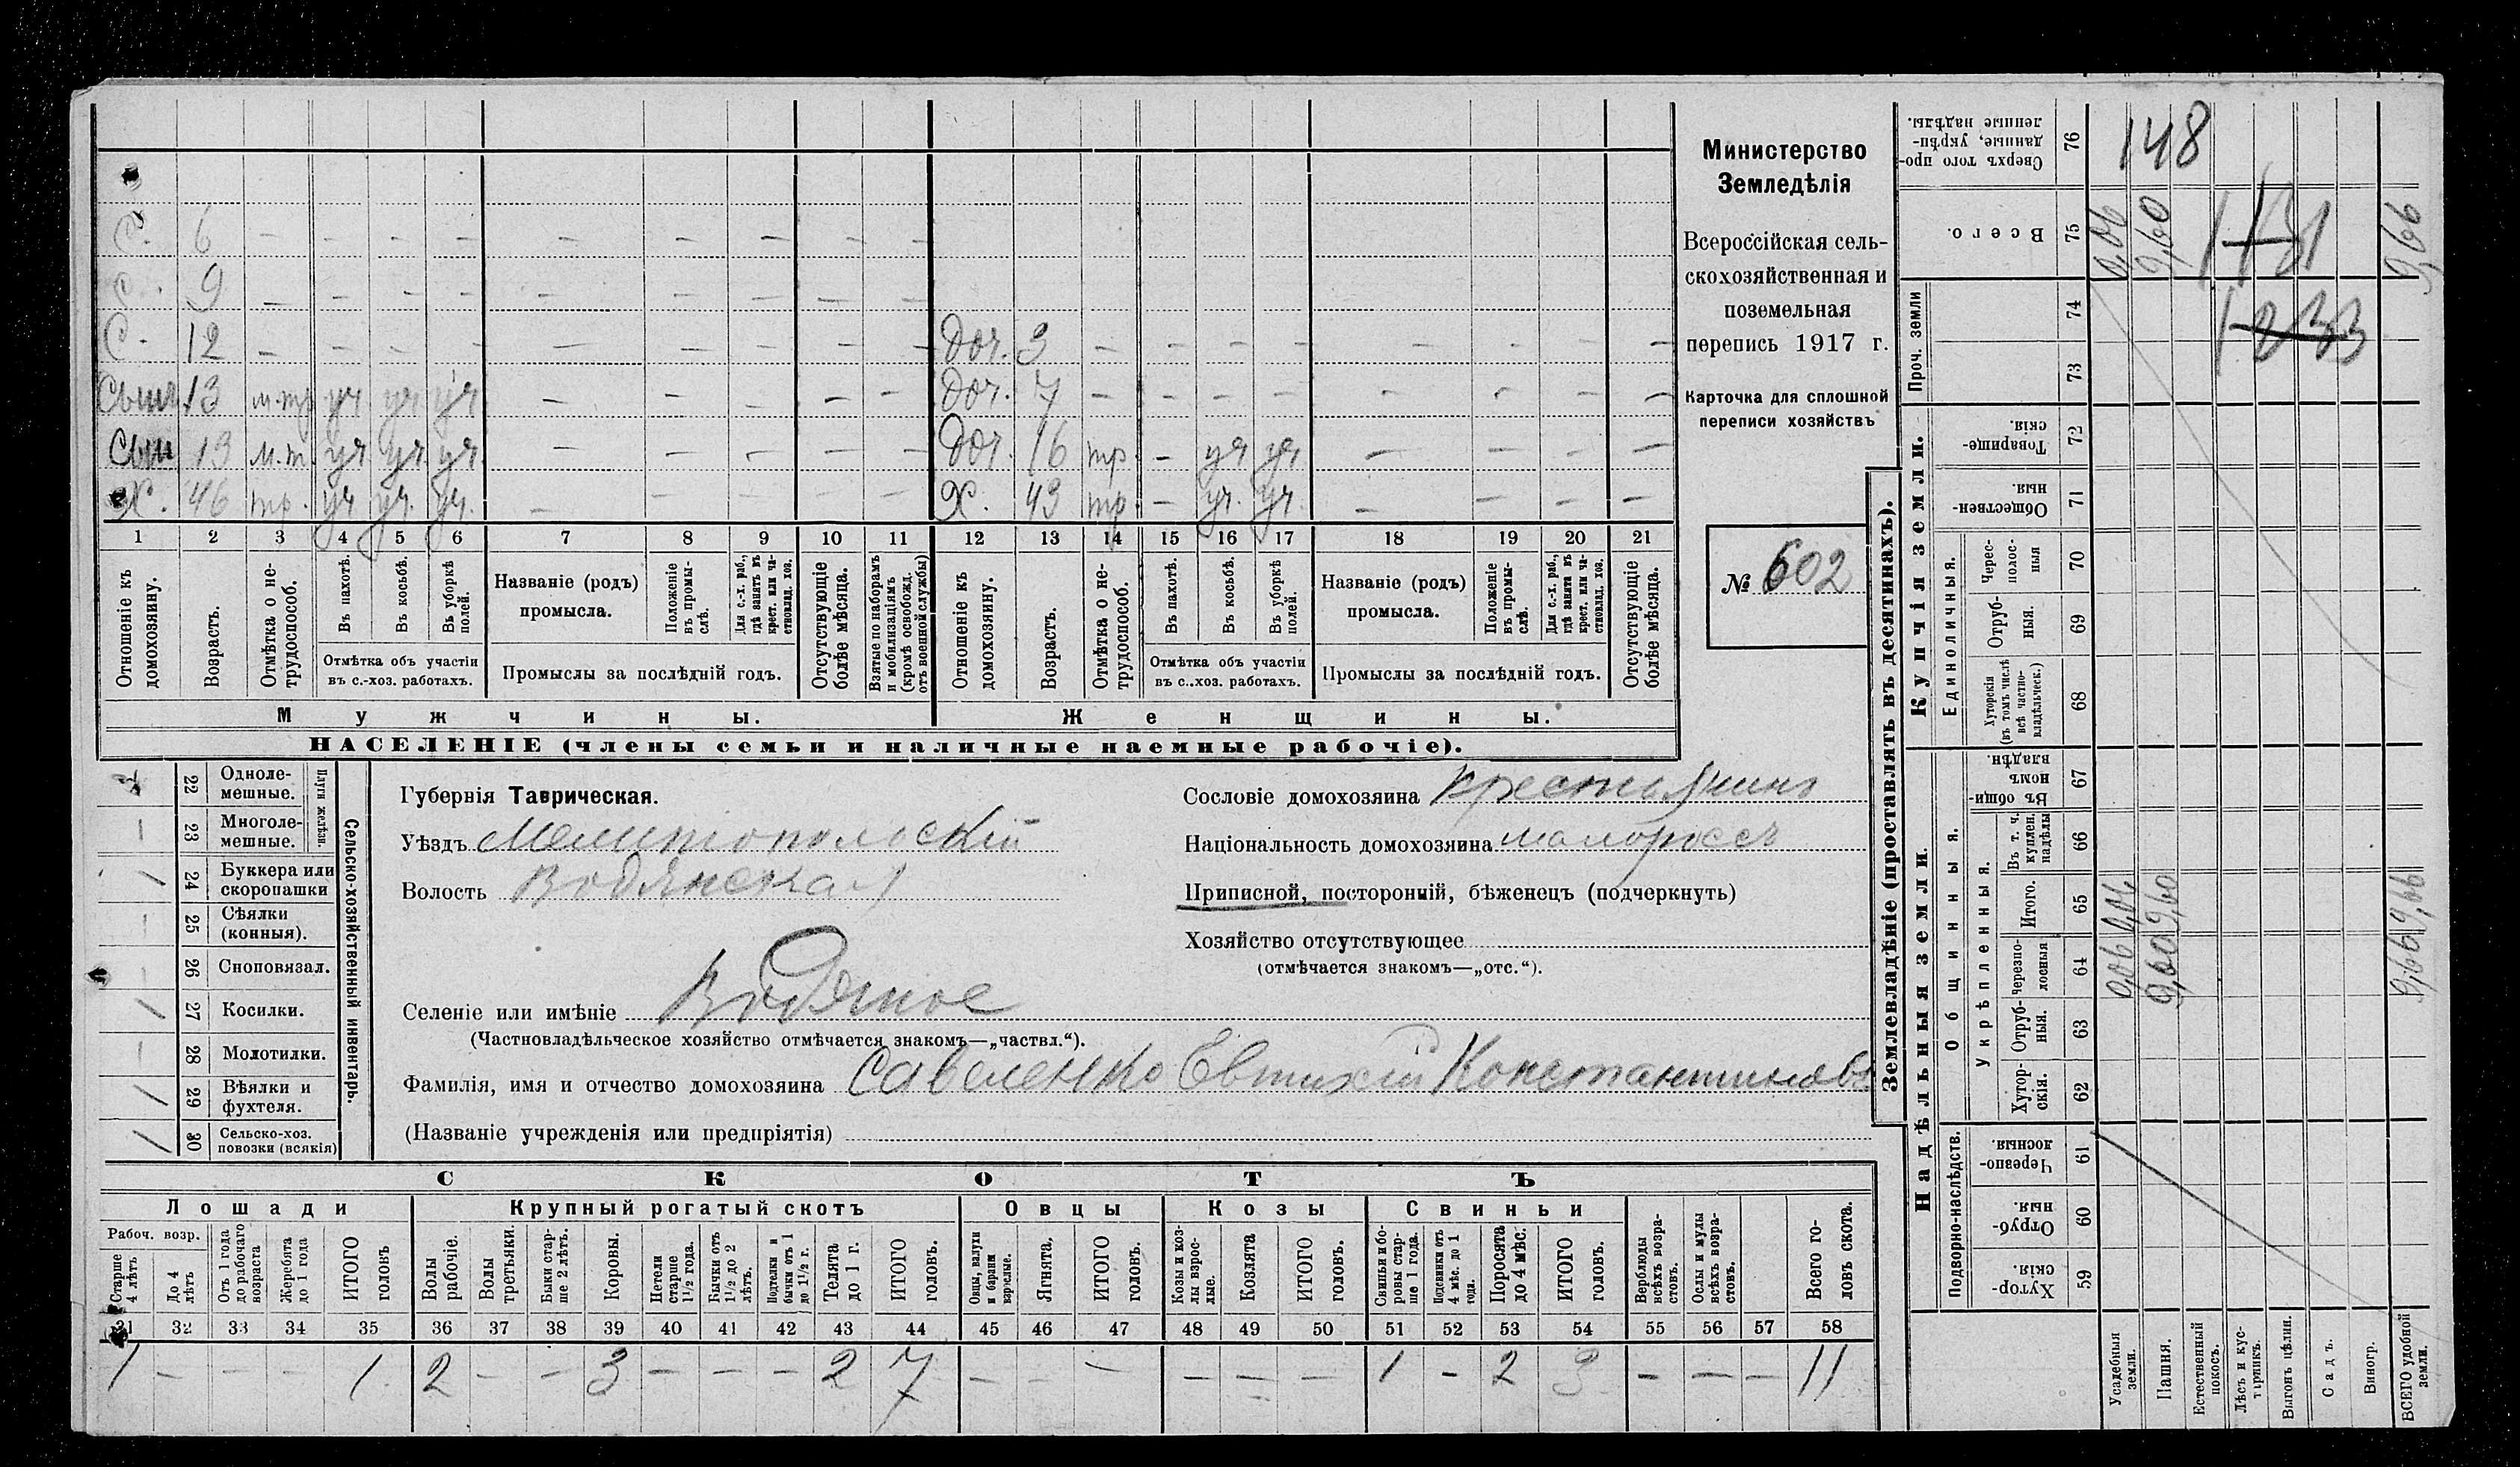 С. 6 — — — — — — — — —
С. 9 — — — — — — — — —
С. 12 — — — — — — — — — Доч. 3 — — — — — — — —
Сын 13 м.тр уч уч уч — — — — — Доч. 7 — — — — — — — —
Сын 19 м.т. уч уч. уч. — — — — — Доч. 16 тр. — уч уч — — — —
Х. 46 тр. уч уч. уч. — — — — — Х. 43 тр. — уч. уч. — — — —
1 2 3 4 5 6 7 8 9 10 11 12 13 14 15 16 17 18 19 20 21
Отношеніе къ домохозяину.
Возрастъ.
Отмѣтка о не-трудоспособ.
Въ пахотѣ.
Въ косьбѣ.
Въ уборкѣ полей.
Отмѣтка объ участіи
въ с.-хоз. работахъ.
Названіе (родъ)
промысла.
Положеніе въ промы-слѣ.
Для с.-х. раб., гдѣ занятъ въ крест. или ча-стновлад. хоз.
Промыслы за послѣдній годъ.
Отсутствующіе болѣе мѣсяца.
Взятые по наборамъ и мобилизаціямъ (кромѣ освобожд. отъ военной службы)
Отношеніе къ домохозяину.
Возрастъ.
Отмѣтка о не-трудоспособ.
Въ пахотѣ.
Въ косьбѣ.
Въ уборкѣ полей.
Отмѣтка объ участіи
въ с.-хоз. работахъ.
Названіе (родъ)
промысла.
Положеніе въ промы-слѣ.
Для с.-х. раб., гдѣ занята въ крест. или ча-стновлад. хоз.
Промыслы за послѣдній годъ.
Отсутствующіе болѣе мѣсяца.
Мужчины.
Женщины.
НАСЕЛЕНІЕ (члены семьи и наличные наемные рабочіе).
Министерство
Земледѣлія
Всероссійская сель-
скохозяйственная и
поземельная
перепись 1917 г.
Карточка для сплошной
переписи хозяйствъ
№ 602
22 Одноле-мешные.
23 Многоле-мешные.
Плуги желѣзн.
24 Буккера или скоропашки /
25 Сѣялки (конныя). —
26 Сноповязал. —
27 Косилки. /
28 Молотилки. —
29 Вѣялки и фухтеля. /
30 Сельско-хоз. повозки (всякія) /
Сельско-хозяйственный инвентарь.
Губернія Таврическая.
Уѣздъ Мелитопольскій
Волость Водянская
Селеніе или имѣніе Водяное
(Частновладѣльческое хозяйство отмѣчается знакомъ—„частвл.“).
Фамилія, имя и отчество домохозяина Савеленко Евтихій Константиновъ
(Названіе учрежденія или предпріятія)
Сословіе домохозяина крестьянинъ
Національность домохозяина малороссъ
Приписной, посторонній, бѣженецъ (подчеркнуть)
Хозяйство отсутствующее
(отмѣчается знакомъ—„отс.“).
СКОТЪ
Лошади
Крупный рогатый скотъ
Овцы
Козы
Свиньи
Рабоч. возр.
Старше 4 лѣтъ
До 4 лѣтъ
Отъ 1 года до рабочаго возраста
Жеребята до 1 года
ИТОГО головъ
Волы рабочіе.
Волы третьяки.
Быки стар-ше 2 лѣтъ.
Коровы.
Нетели старше 1½ года.
Бычки отъ 1½ до 2 лѣтъ.
Подтелки и бычки отъ 1 до 1½ г.
Телята до 1 г.
ИТОГО головъ.
Овцы, валухи и бараны взрослые.
Ягнята.
ИТОГО головъ.
Козы и коз-лы взрос-лые.
Козлята
ИТОГО головъ.
Свиньи и бо-ровы стар-ше 1 года.
Подсвинки отъ 4 мѣс. до 1 года.
Поросята до 4 мѣс.
ИТОГО головъ.
Верблюды всѣхъ возра-стовъ.
Ослы и мулы всѣхъ возра-стовъ.
Всего го-ловъ скота.
31 32 33 34 35 36 37 38 39 40 41 42 43 44 45 46 47 48 49 50 51 52 53 54 55 56 57 58
1 — — — 1 2 — — 3 — — — 2 7 — — — — — — 1 — 2 3 — — — 11
Землевладѣніе (проставлять въ десятинахъ).
Купчія земли.
Надѣльныя земли.
Сверхъ того про-данные, укрѣп-ленные надѣлы. 76
148
Всего. 75
0,06 9,60 1131 9,66
Проч. земли
74
1233
73
Товарище-скія. 72
Обществен-ныя. 71
Единоличныя.
Черес-полос-ныя 70
Отруб-ныя. 69
Хуторскія (въ томъ числѣ всѣ частно-владѣльческ.) 68
Общинныя.
Въ общи-номъ владѣн. 67
Укрѣпленныя.
Въ т. ч. куплен. надѣлы 66
Итого. 65
0,06 9,60 9,66
Черезпо-лосныя 64
0,06 9,60 9,66
Отруб-ныя. 63
Хутор-скія. 62
Подворно-наслѣдств.
Черезпо-лосныя. 61
Отруб-ныя. 60
Хутор-скія. 59
Усадебныя земли.
Пашня.
Естественный покосъ.
Лѣсъ и кус-тарникъ.
Выгонъ цѣлин.
Садъ.
Виногр.
ВСЕГО удобной земли.